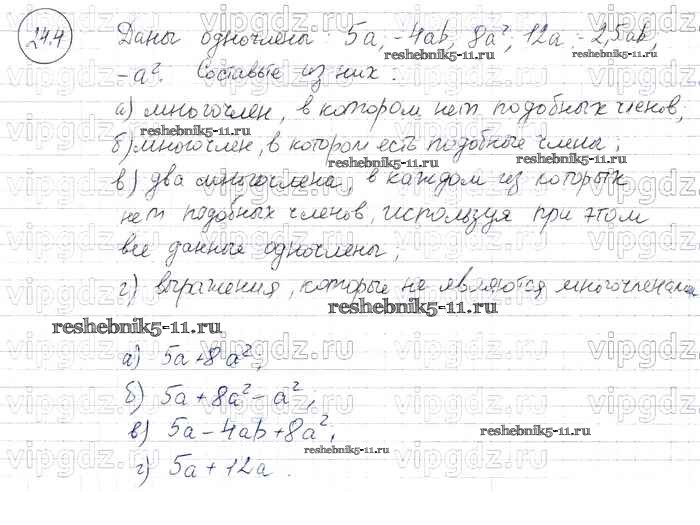 24.4 Даны одночлены: 5a, -4ab, 8a², 12a, -2,5ab,
-a². Составьте из них:
а) многочлен, в котором нет подобных членов,
б) многочлен, в котором есть подобные члены;
в) два многочлена, в каждом из которых
нет подобных членов, используя при этом
все данные одночлены;
г) выражения, которые не являются многочленами
а) 5a + 8a²,
б) 5a + 8a² - a²,
в) 5a - 4ab + 8a²,
г) 5a + 12a.
vipgdz.ru
reshebnik5-11.ru